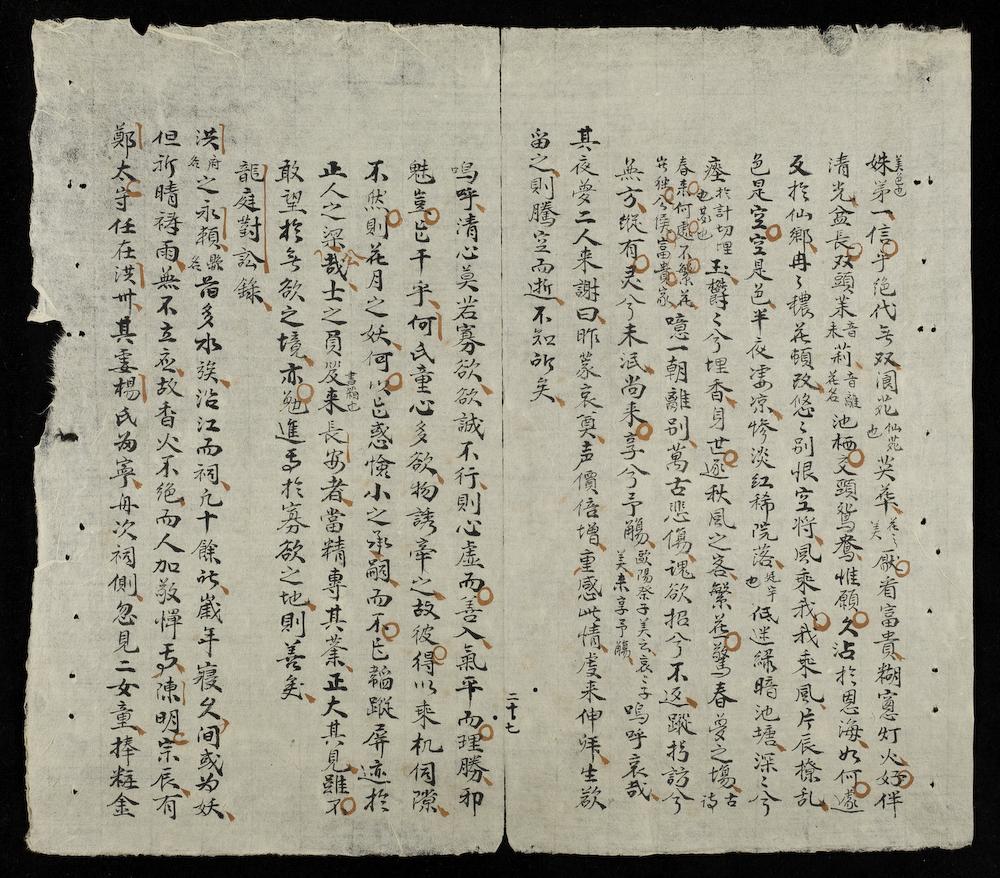 姝第一信乎絶代无双阆苑仙苑也英華花之美厭看富貴糊窓灯火好伴
清光盆長双頭茉音末莉音離花名池栖交頸鴛鴦惟願久沾於恩海如何遽
反於仙鄉冉々穠花頓改悠々别恨空将風乘我我乘風片辰撩乱
色是空空是色半夜凄凉惨淡紅稀院落也低迷緑暗池塘深々兮
瘞於計切埋也墓也玉欝々兮埋香身世逐秋風之客繁花驚春夢之塲古詩
春来何處不繁花
噫一朝離别萬古悲傷魂欲招兮不返蹤扚訪兮
無方縱有灵兮未泯尚来享兮予觴歐陽祭子美云哀々子美来享予觴嗚呼哀哉
其夜夢二人来謝曰昨蒙哀奠声價倍增重感此情虔来伸拜生欲
留之則騰空而逝不知所矣
二十七
嗚呼清心莫若寡欲欲誠不行則心虚而善入氣平而理勝邪
魅豈乞干乎何氏童心多欲物誘牽之故彼得以乘机伺隙
不然則花月之妖何以乞惑愉小之承嗣而不乞韜蹤屏迹於
正人之梁公哉士之負笈書箱也来長安者當精專其業正大其見雖不
敢望於无欲之境亦勉進焉於寡欲之地則善矣
龍庭對訟錄
洪府名之永頼縣名昔多水族沿江而祠凡十餘所歲年寝久間或为妖
但祈晴禱雨無不立应故香火不绝而人加敬憚焉陳明宗辰有
鄭太守任在洪州其妻楊氏为寧舟次祠側忽見二女童捧粧金